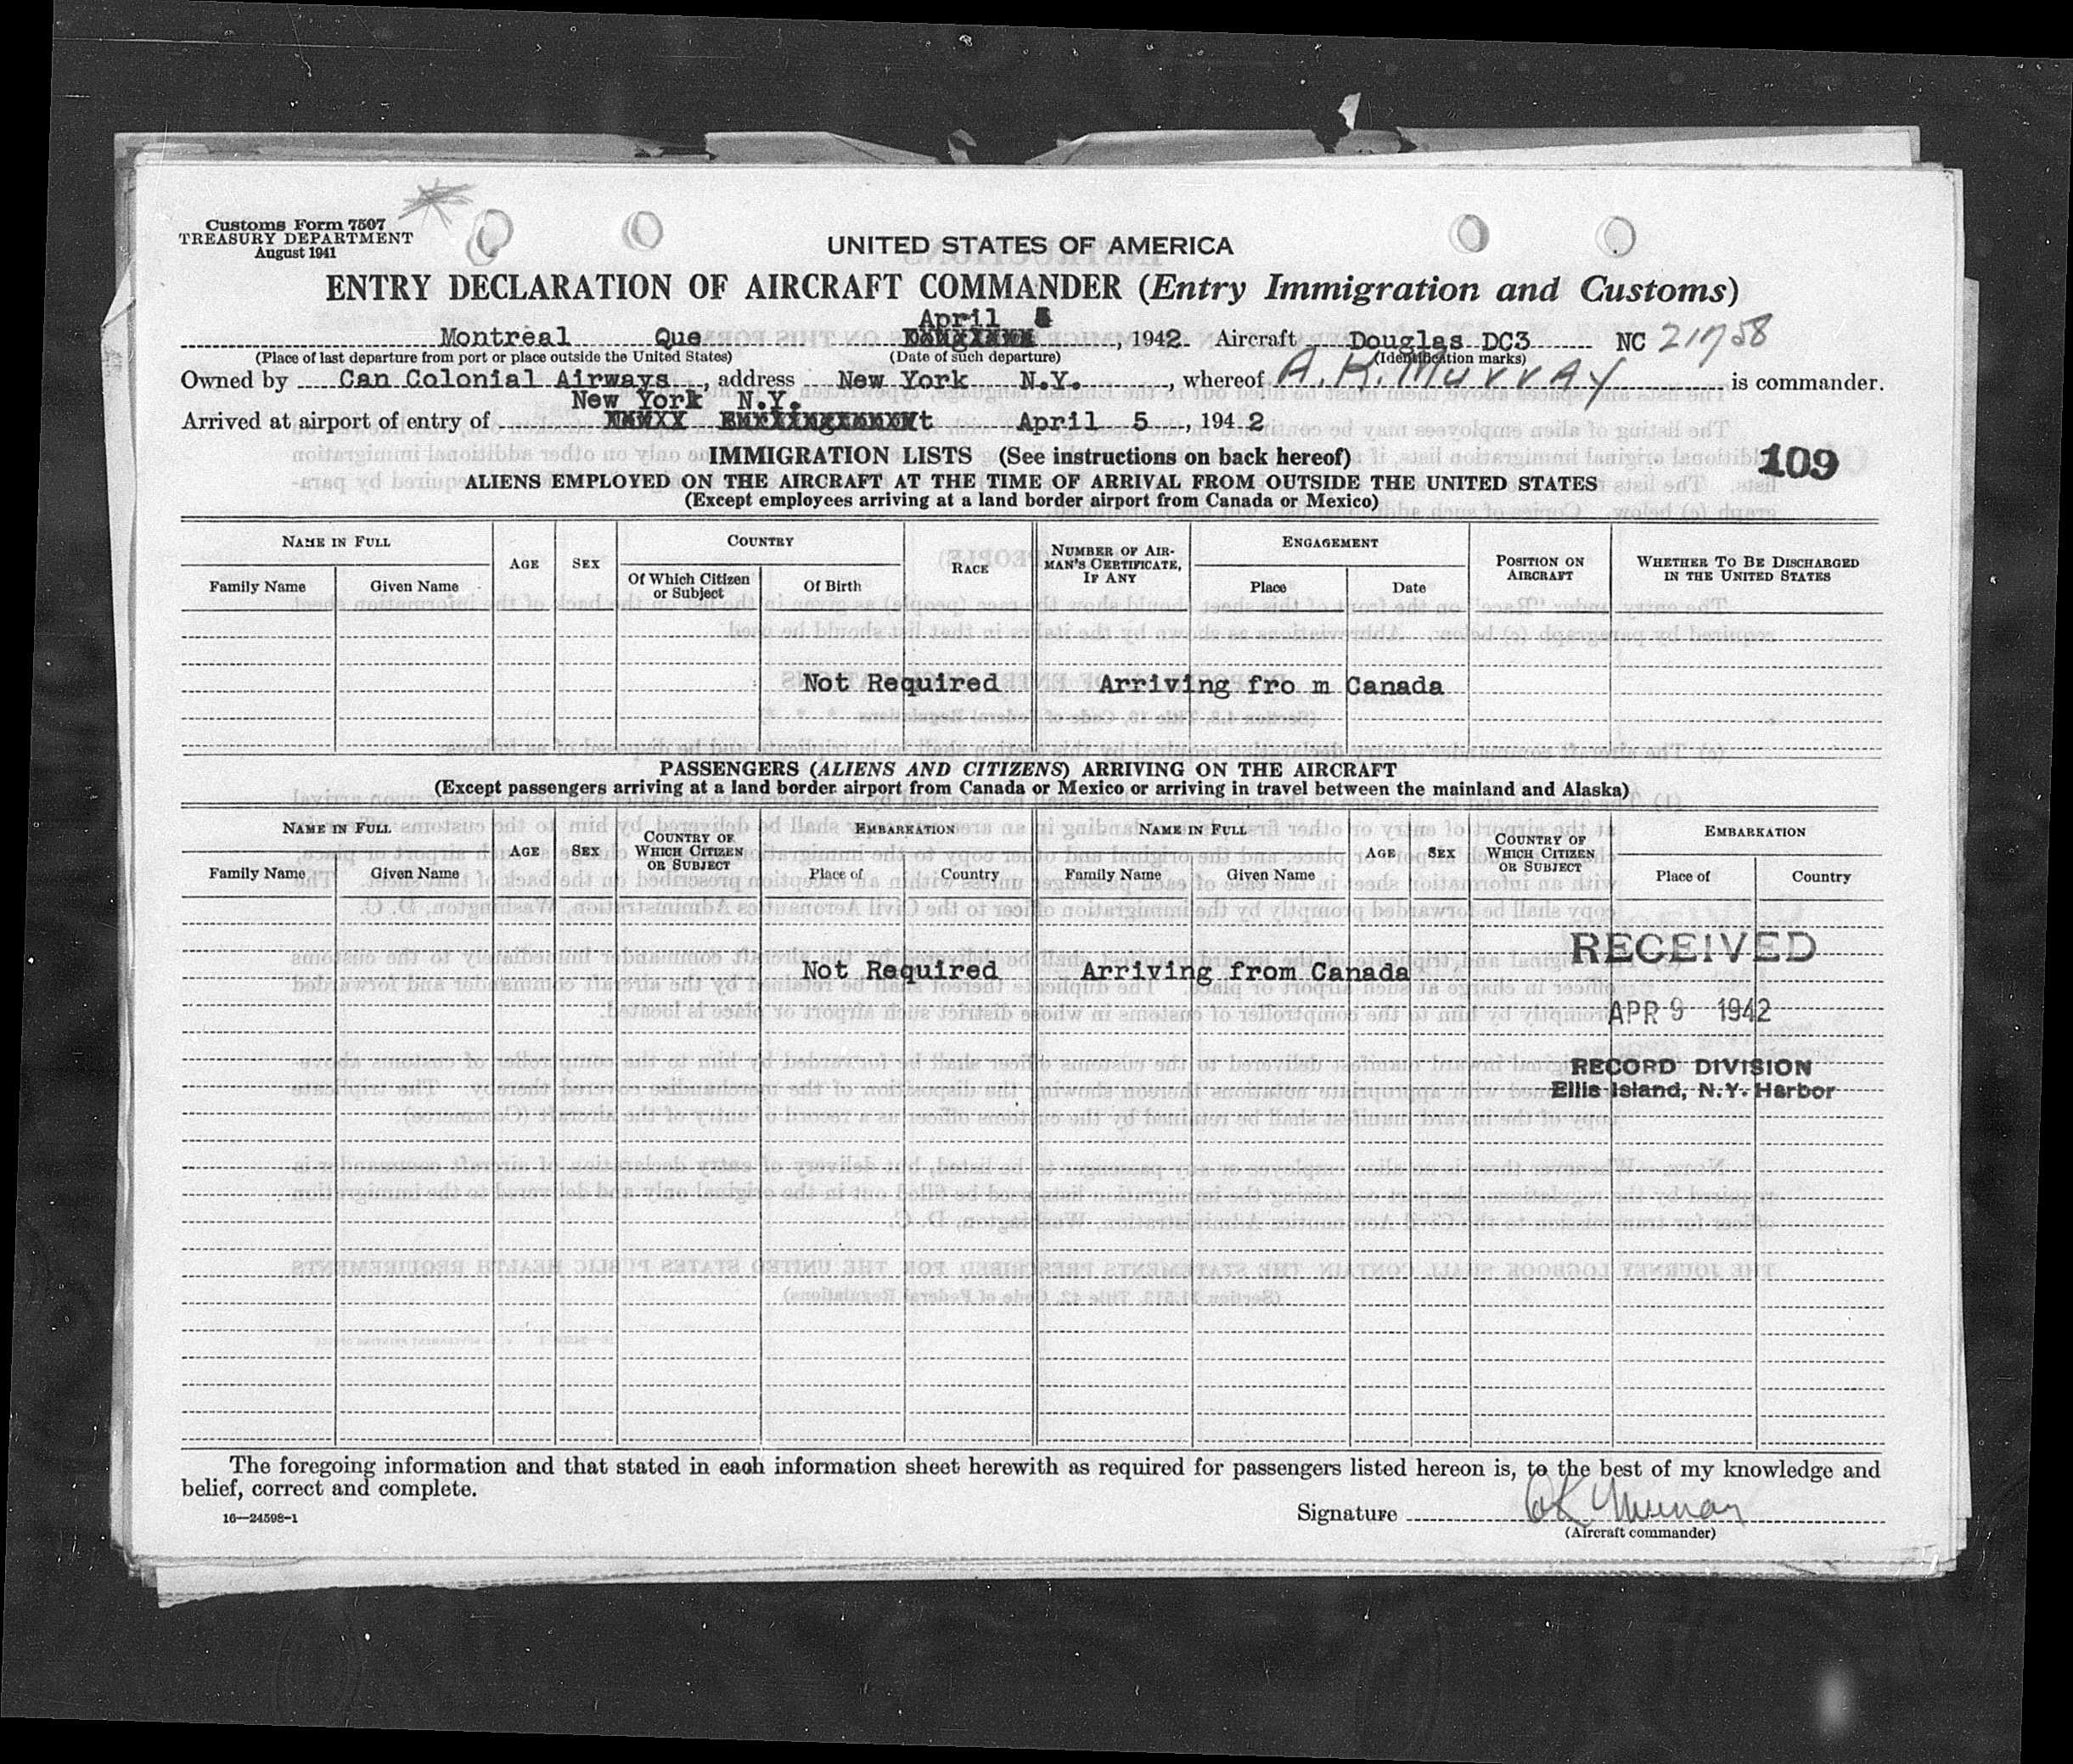 Customs Form 7507
TREASURY DEPARTMENT
August 1941
UNITED STATES OF AMERICA
ENTRY DECLARATION OF AIRCRAFT COMMANDER (Entry Immigration and Customs)
April
Montreal Que , 1942. Aircraft Douglas DC3 NC 21758
(Place of last departure from port or place outside the United States) (Date of such departure) (Identification marks)
Owned by Can Colonial Airways , address New York N.Y. , whereof A.K. Murray is commander.
New York N.Y.
Arrived at airport of entry of April 5 , 194 2
IMMIGRATION LISTS (See instructions on back hereof)
109
ALIENS EMPLOYED ON THE AIRCRAFT AT THE TIME OF ARRIVAL FROM OUTSIDE THE UNITED STATES
(Except employees arriving at a land border airport from Canada or Mexico)
NAME IN FULL AGE SEX COUNTRY RACE NUMBER OF AIR-MAN'S CERTIFICATE, IF ANY ENGAGEMENT POSITION ON AIRCRAFT WHETHER TO BE DISCHARGED IN THE UNITED STATES
Family Name Given Name Of Which Citizen or Subject Of Birth Place Date
Not Required Arriving fro m Canada
PASSENGERS (ALIENS AND CITIZENS) ARRIVING ON THE AIRCRAFT
(Except passengers arriving at a land border airport from Canada or Mexico or arriving in travel between the mainland and Alaska)
NAME IN FULL AGE SEX COUNTRY OF WHICH CITIZEN OR SUBJECT EMBARKATION NAME IN FULL AGE SEX COUNTRY OF WHICH CITIZEN OR SUBJECT EMBARKATION
Family Name Given Name Place of Country Family Name Given Name Place of Country
RECEIVED
Not Required Arriving from Canada
APR 9 1942
RECORD DIVISION
Ellis Island, N.Y. Harbor
The foregoing information and that stated in each information sheet herewith as required for passengers listed hereon is, to the best of my knowledge and
belief, correct and complete.
Signature AK Murray
16—24598-1
(Aircraft commander)